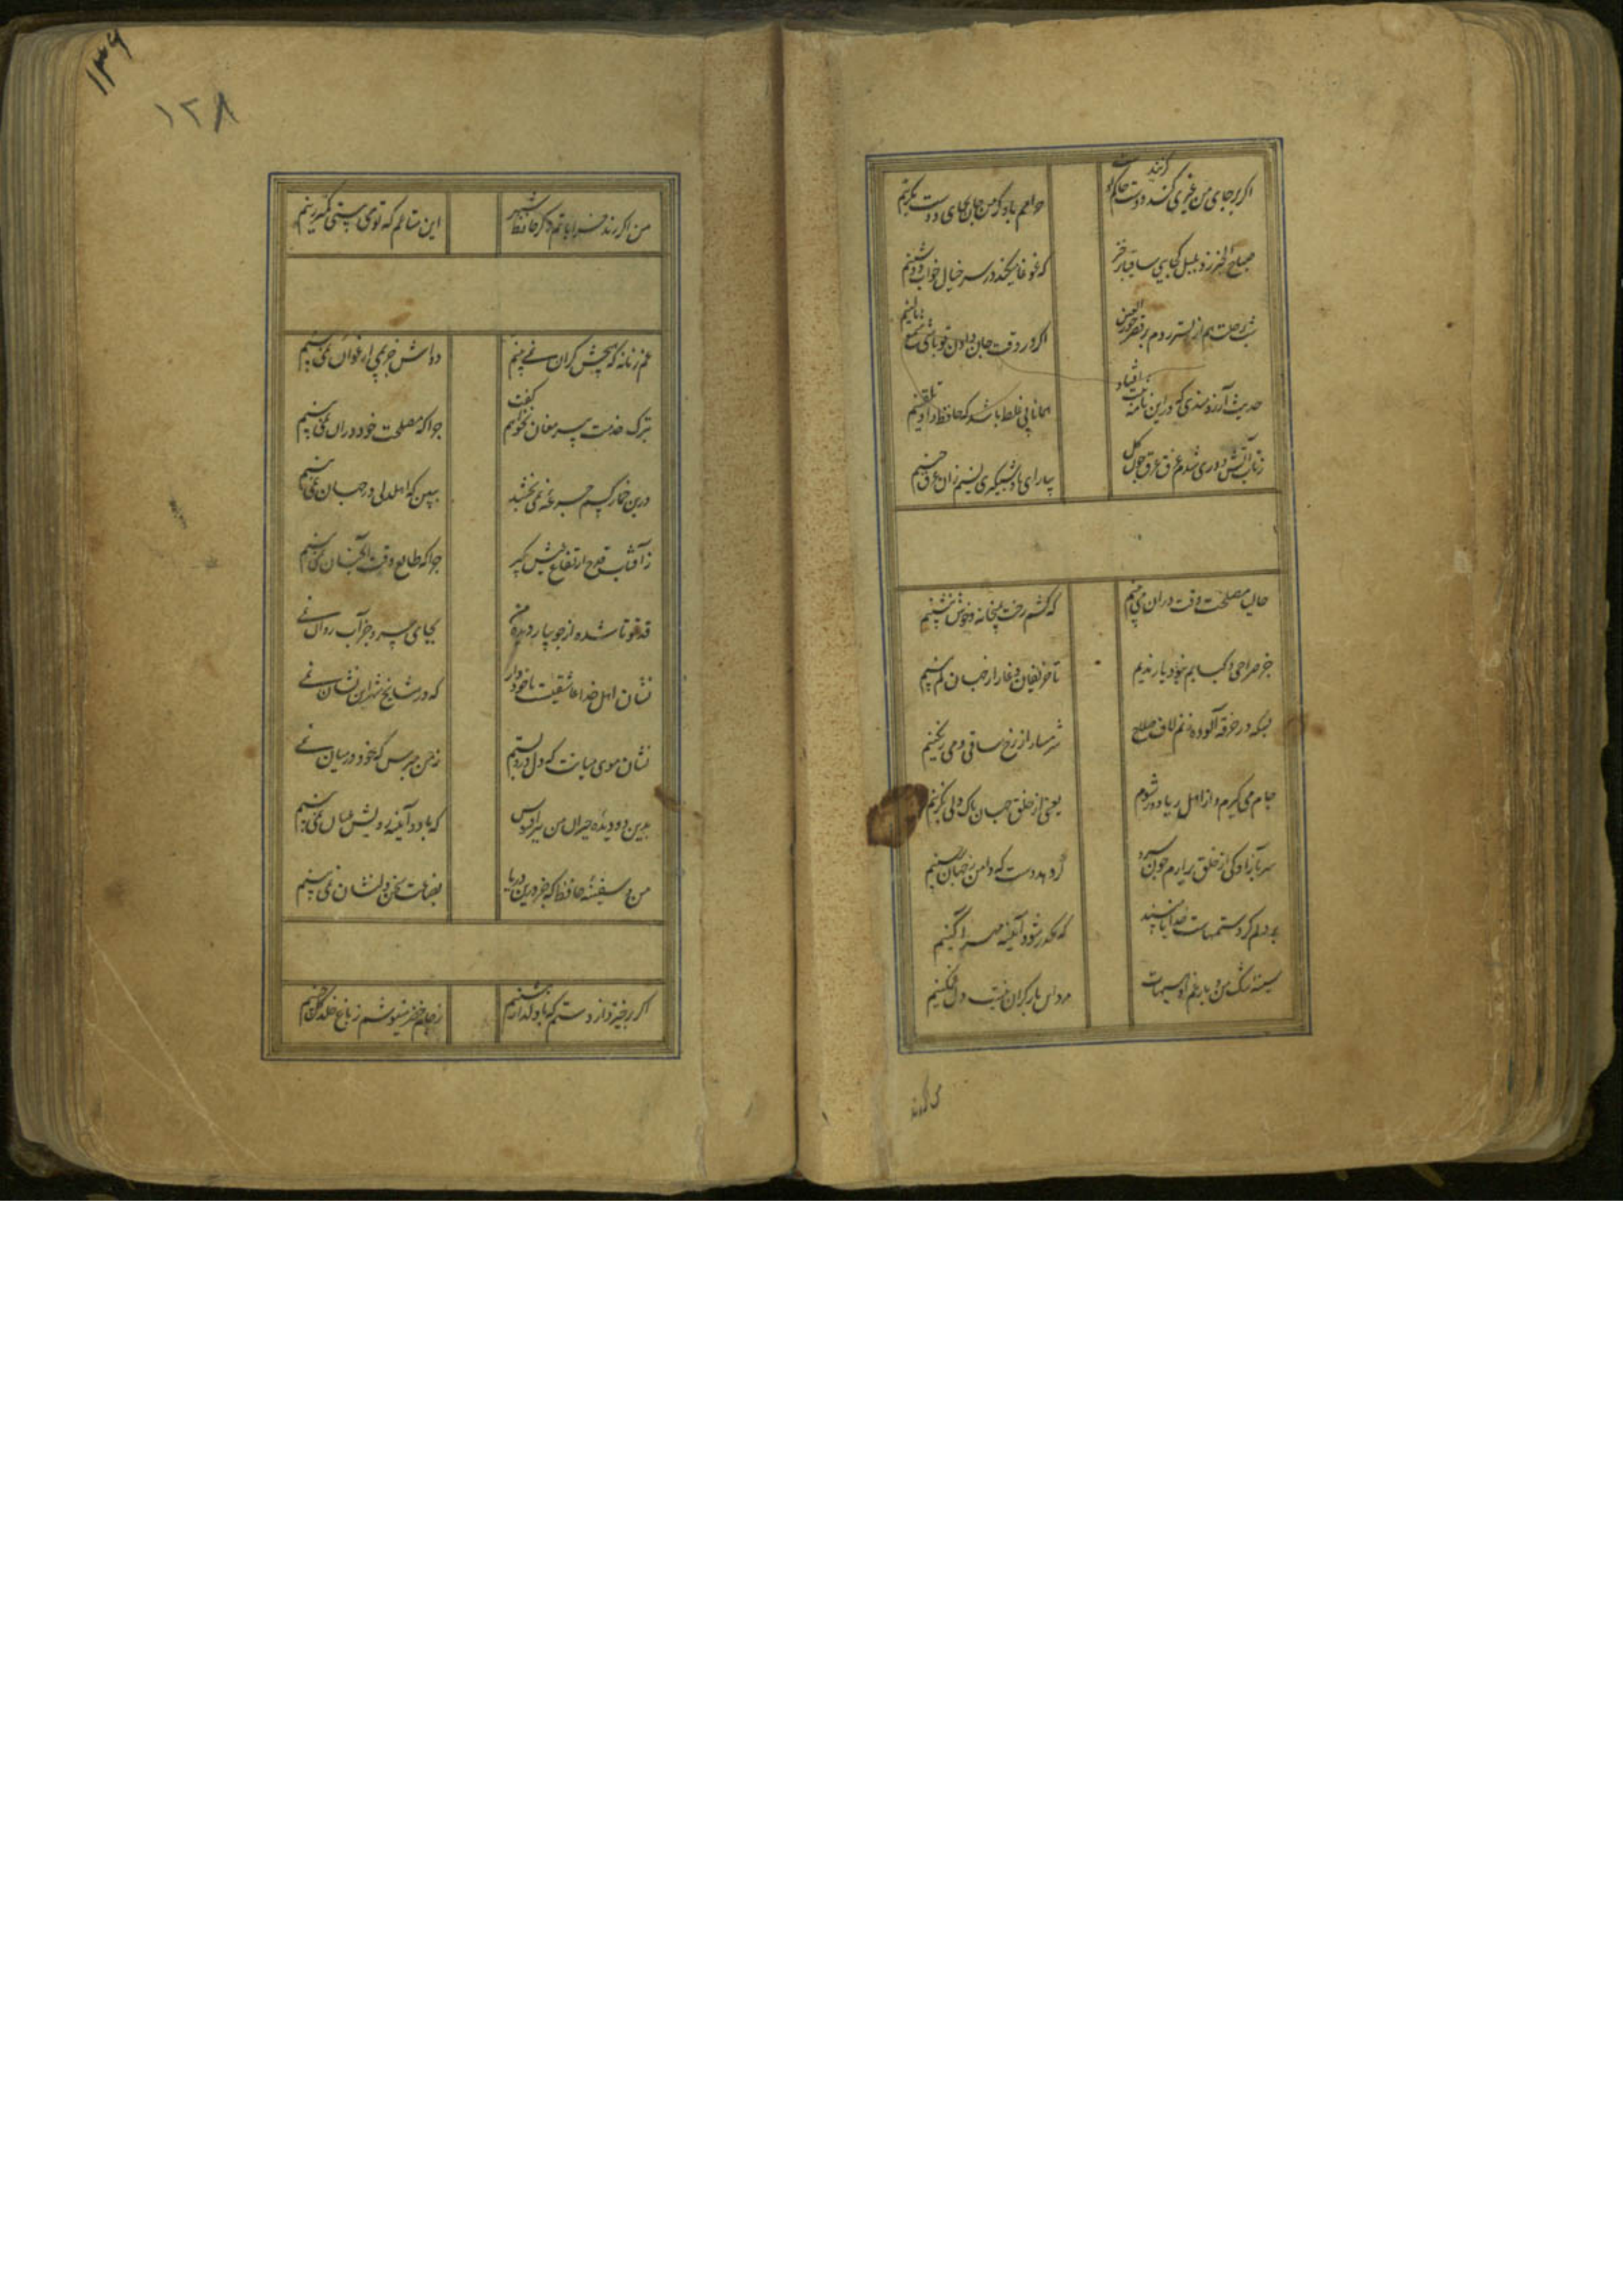 اکر بر جای من غیری کزیند دوست حاکم اوست
حرامم باد کر من جان بجای دوست بکزینم
صباح الخیر زد بلبل کجایی ساقیا برخیز
که غوغا میکند در سر خیال خواب دوشینم
شب رحلت هم از بستر روم بر قصر حور العین
اکر در وقت جان دادن تو باشی شمع بالینم
حدیث آرزومندی که در این نامه ثبت افتاد
همانا بی غلط باشد که حافظ داد تلقینم
ز تاب آتش دوری شدم غرق عرق چون کل
بیار ای باد شبکیری نسیم زان عرق چینم
حالیا مصلحت وقت در آن می بینم
که کشم رخت بمیخانه و خوش بنشینم
جز صراحی و کتابم نبود یار و ندیم
تا حریفان دغا را ز جهان کم بینم
بسکه در خرقه آلوده زنم لاف صلاح
شرمسار از رخ ساقی و می رنکینم
جام می کیرم و از اهل ریا دور شوم
یعنی از خلق جهان پاک دلی بکزینم
سر بآزادکی از خلق برآرم چون سرو
کر دهد دست که دامن ز جهان برچینم
بر دلم کرد ستمهاست خدایا مپسند
که مکدر شود آیینه مهر آکینم
سینه تنک من و بار غم او هیهات
مرد این بار کران نیست دل مسکینم
من اکر رند خراباتم و کر حافظ شهر
این متاعم که توی بینی و کمتر زینم
۱۳۶
۱۲۸
غم زمانه که هیچش کران نمی بینم
دواش جز می ارغوان نمی بینم
بترک خدمت پیر مغان نخواهم کفت
چرا که مصلحت خود در آن نمی بینم
درین خمار کسم جرعه نمی بخشد
ببین که اهل دلی در جهان نمی بینم
ز آفتاب قدح ارتفاع عیش بکیر
چرا که طالع وقت آنچنان نمی بینم
قد تو تا شده از جویبار دیده من
بجای سرو جز آب روان نمی
نشان اهل خدا عاشقیست با خود دار
که در مشایخ شهر این نشان نمی
نشان موی میانت که دل درو بستم
ز من مپرس که خود در میان نمی
بدین دو دیده حیران من هزار افسوس
که با دو آینه رویش عیان نمی بینم
من و سفینه حافظ که جز درین دریا
بضاعت سخن دلنشان نمی بینم
اکر برخیزد از دستم که با دلدار بنشینم
ز جام خضر مینوشم ز باغ خلد کل چینم